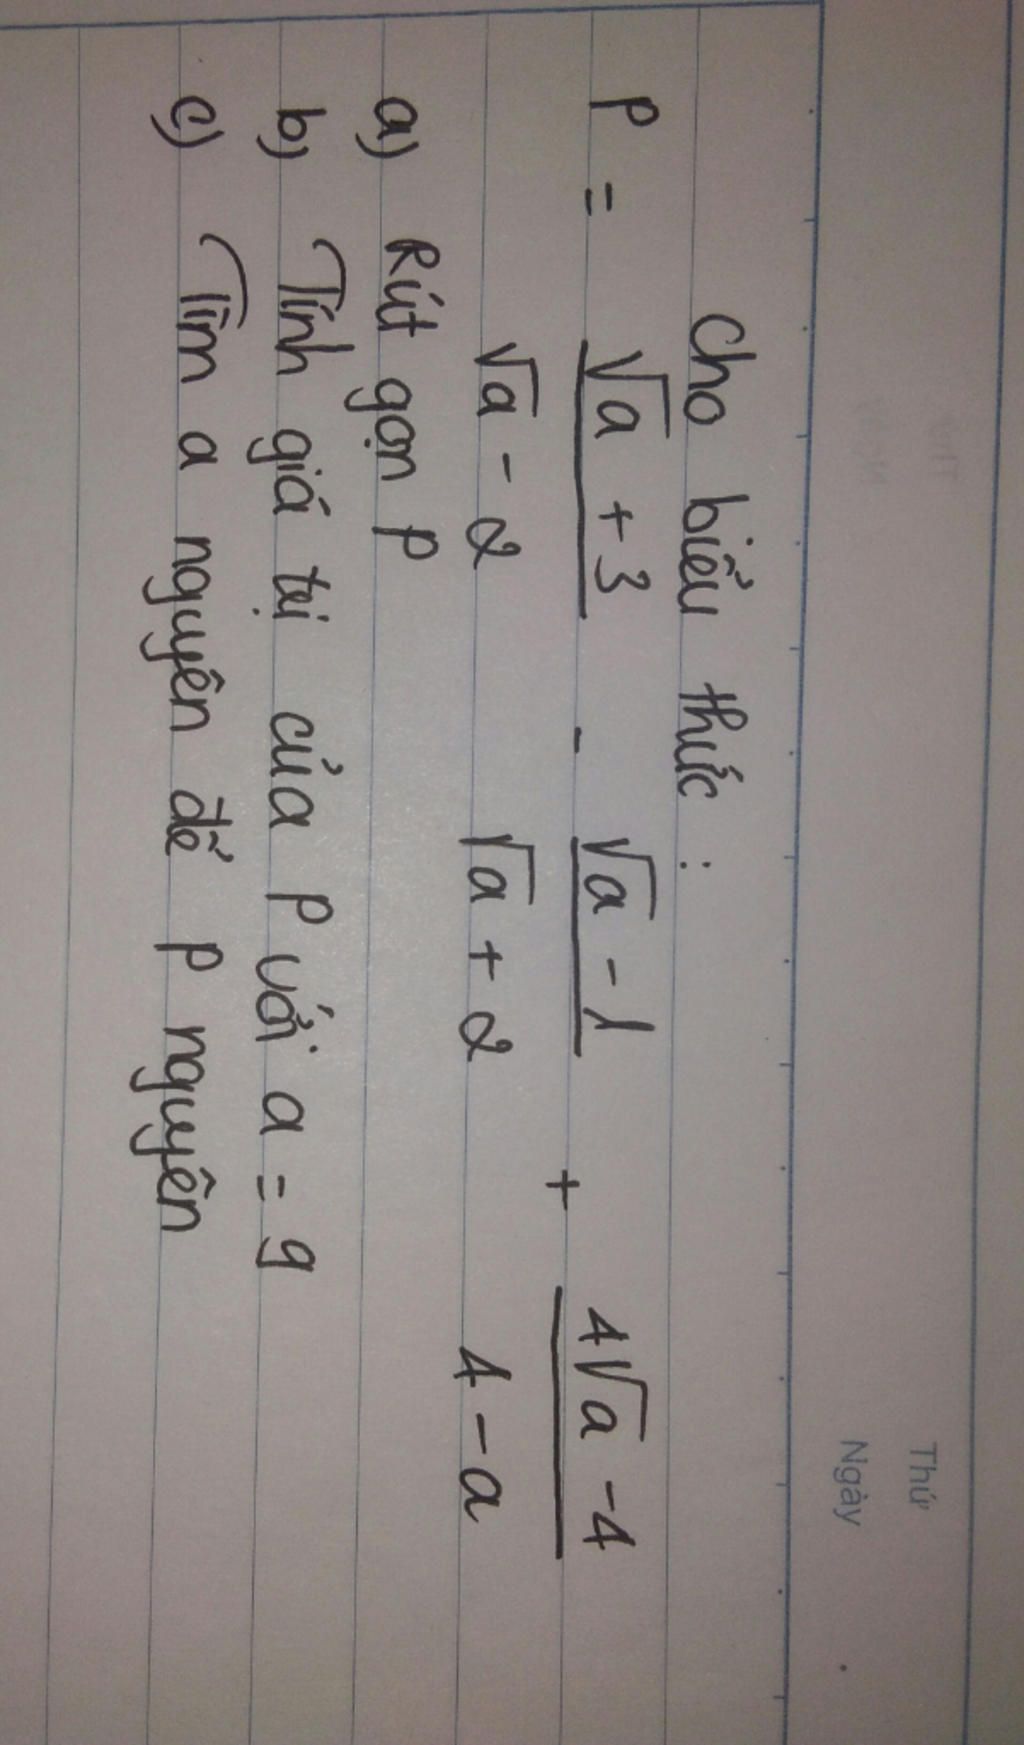 Thứ
Ngày
Cho biểu thức :
P = \frac{\sqrt{a} + 3}{\sqrt{a} - 2} - \frac{\sqrt{a} - 1}{\sqrt{a} + 2} + \frac{4\sqrt{a} - 4}{4 - a}
a) Rút gọn P
b) Tính giá tị của P với a = 9
c) Tìm a nguyên để P nguyên